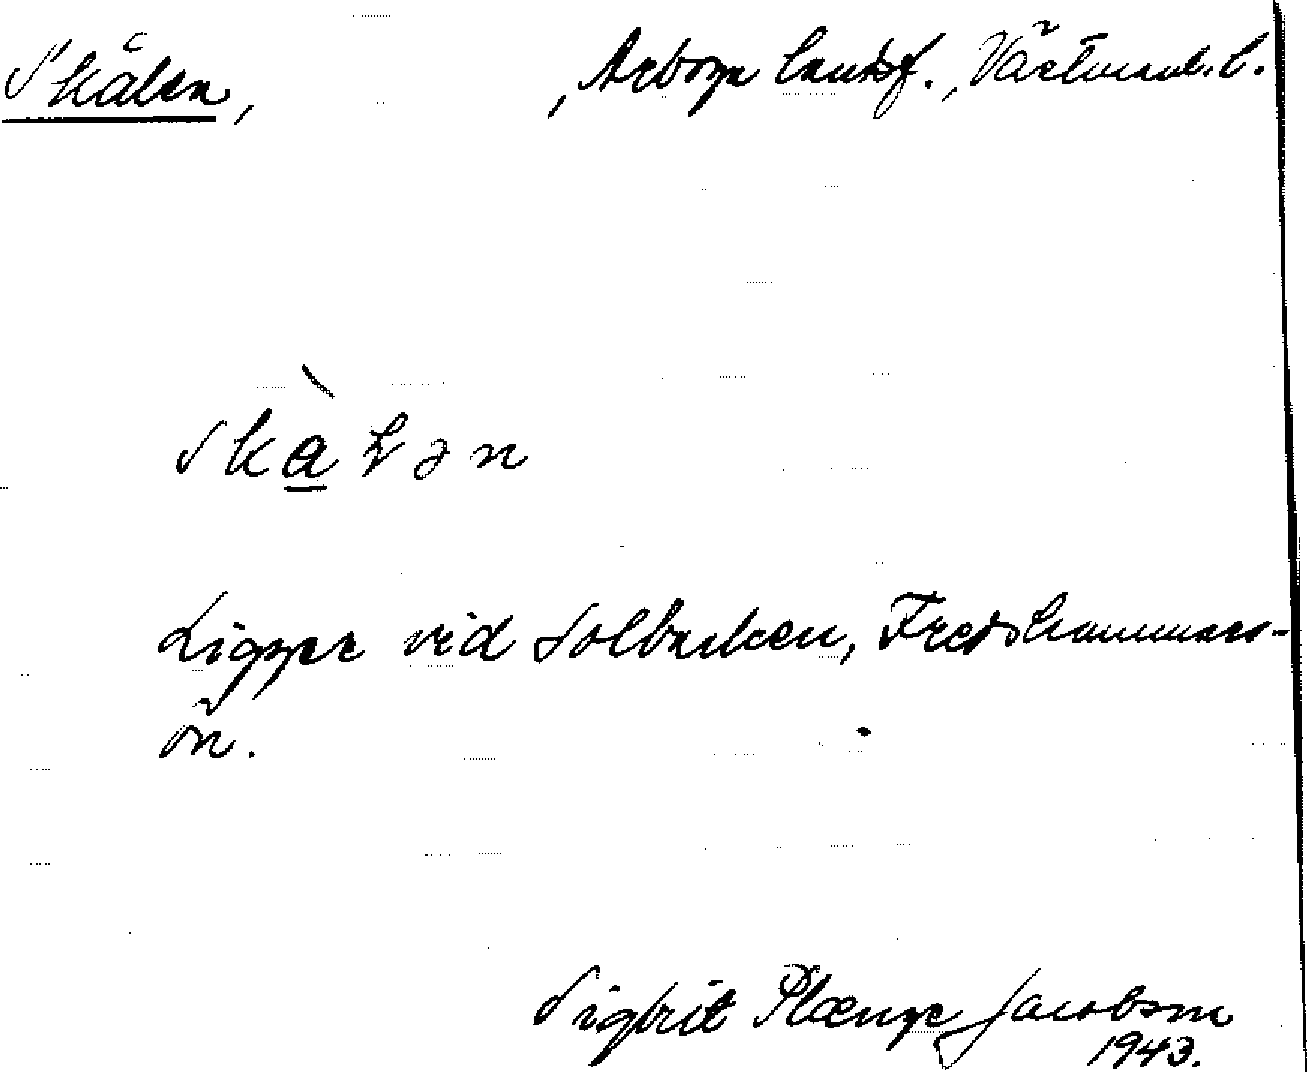 Skålen, , Arboga landsf., Västmanl. l.
skàłən
Ligger vid Solbacken, Fredshammars-
ön.
Sigbrit Plænge Jacobson
1943.